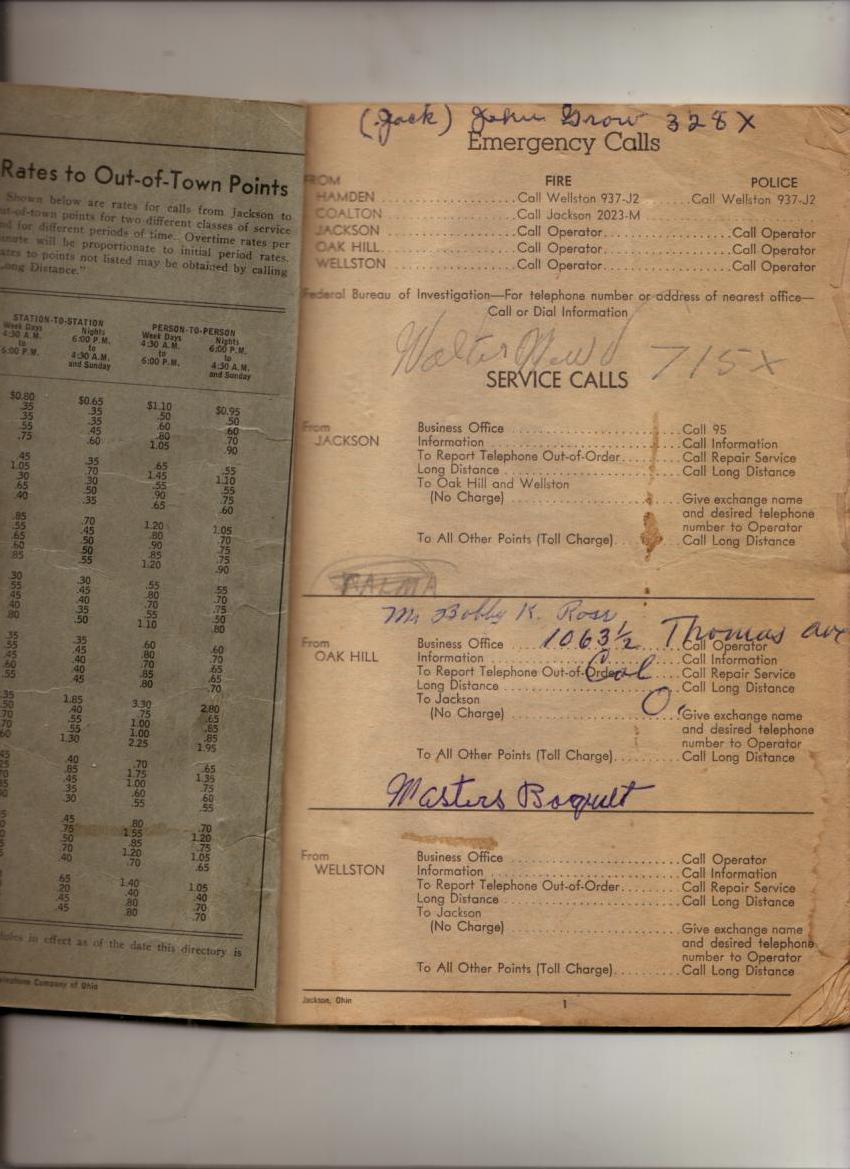 Rates to Out-of-Town Points
Shown below are rates for calls from Jackson to
out-of-town points for two different classes of service
and for different periods of time. Overtime rates per
minute will be proportionate to initial period rates.
Rates to points not listed may be obtained by calling
"Long Distance."
STATION-TO-STATION
PERSON-TO-PERSON
Week Days 4:30 A.M. to 6:00 P.M.
Nights 6:00 P.M. to 4:30 A.M. and Sunday
Week Days 4:30 A.M. to 6:00 P.M.
Nights 6:00 P.M. to 4:30 A.M. and Sunday
$0.80 $0.65 $1.10 $0.95
.35 .35 .50 .50
.35 .35 .60 .60
.55 .45 .80 .70
.75 .60 1.05 .90
.45 .35 .65 .55
1.05 .70 1.45 1.10
.30 .30 .55 .55
.65 .50 .90 .75
.40 .35 .65 .60
.85 .70 1.20 1.05
.55 .45 .80 .70
.65 .50 .90 .75
.60 .50 .85 .75
.85 .55 1.20 .90
.30 .30 .55 .55
.55 .45 .80 .75
.45 .40 .70
.40 .35 .55 .50
.80 .50 1.10 .80
.35 .35 .60 .60
.55 .45 .80 .70
.45 .40 .70 .65
.60 .40 .85 .65
.55 .45 .80 .70
1.85 3.30 2.80
.40 .75 .65
.55 1.00 .85
.55 1.00 .85
1.30 2.25 1.95
.40 .70 .65
.85 1.75 1.35
.45 1.00 .75
.35 .60 .60
.30 .55 .55
.45 .80 .70
.75 1.55 1.20
.50 .85 .75
.70 1.20 1.05
.40 .70 .65
.65 1.40 1.05
.20 .40 .40
.45 .80 .70
.45 .80 .70
in effect as of the date this directory is
Telephone Company of Ohio
(Jack) John Grow 328X
Emergency Calls
FROM FIRE POLICE
HAMDEN Call Wellston 937-J2 Call Wellston 937-J2
COALTON Call Jackson 2023-M
JACKSON Call Operator Call Operator
OAK HILL Call Operator Call Operator
WELLSTON Call Operator Call Operator
Federal Bureau of Investigation—For telephone number or address of nearest office—
Call or Dial Information
Walter 715X
SERVICE CALLS
From JACKSON
Business Office Call 95
Information Call Information
To Report Telephone Out-of-Order Call Repair Service
Long Distance Call Long Distance
To Oak Hill and Wellston
(No Charge) Give exchange name
and desired telephone
number to Operator
To All Other Points (Toll Charge) Call Long Distance
Mr Bobby K. Ross
1063½ Thomas ave
From OAK HILL
Business Office Call Operator
Information Call Information
To Report Telephone Out-of-Order Call Repair Service
Col
Long Distance Call Long Distance
O.
To Jackson
(No Charge) Give exchange name
and desired telephone
number to Operator
To All Other Points (Toll Charge) Call Long Distance
Masters Boqult
From WELLSTON
Business Office Call Operator
Information Call Information
To Report Telephone Out-of-Order Call Repair Service
Long Distance Call Long Distance
To Jackson
(No Charge) Give exchange name
and desired telephone
number to Operator
To All Other Points (Toll Charge) Call Long Distance
Jackson, Ohio
1